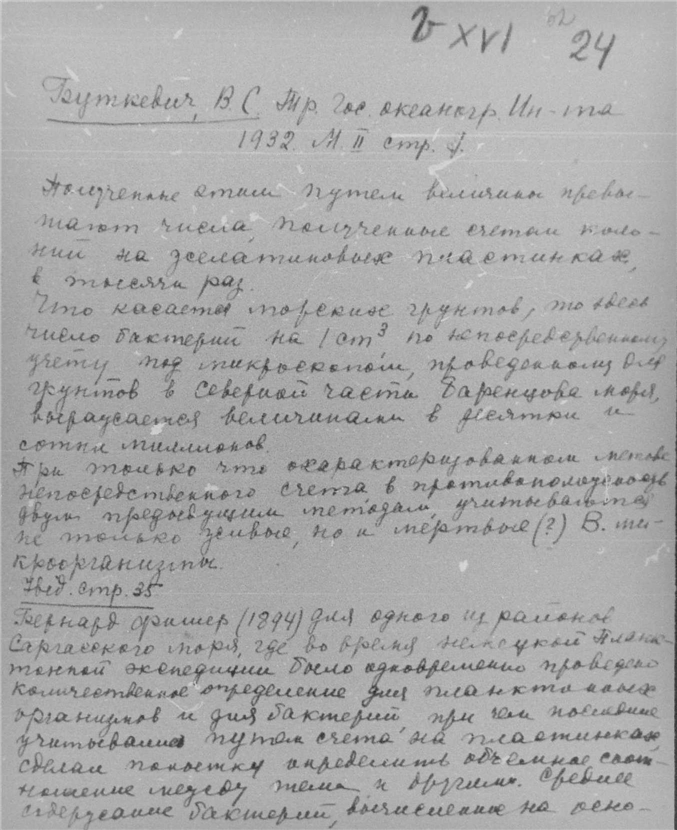 XVI 24
Буткевич, В.С. Тр. Гос. океаногр. Ин-та
1932. М. II стр.
Полученные этим путем величины превы-
шают числа, полученные счетом коло-
ний на желатиновых пластинках,
в тысячи раз.
Что касается морских грунтов, то здесь
число бактерий на 1 cm³ по непосредственному
учету под микроскопом, проведенному для
грунтов в северной части Баренцова моря,
выражается величинами в десятки и
сотни миллионов.
При только что охарактеризованном методе
непосредственного счета в противоположность
двум предыдущим методам, учитываются
не только живые, но и мёртвые (?) В. ми-
кроорганизмы.
стр. 35
Бернард Фишер (1894) для одного из районов
Саргасского моря, где во время немецкой Планк-
тонной экспедиции было одновременно проведено
количественное определение для планктонных
организмов и для бактерий, при чем последние
учитывались путем счета на пластинках,
сделал попытку определить объемное соот-
ношение между теми и другими. Среднее
содержание бактерий, вычисленное на осно-